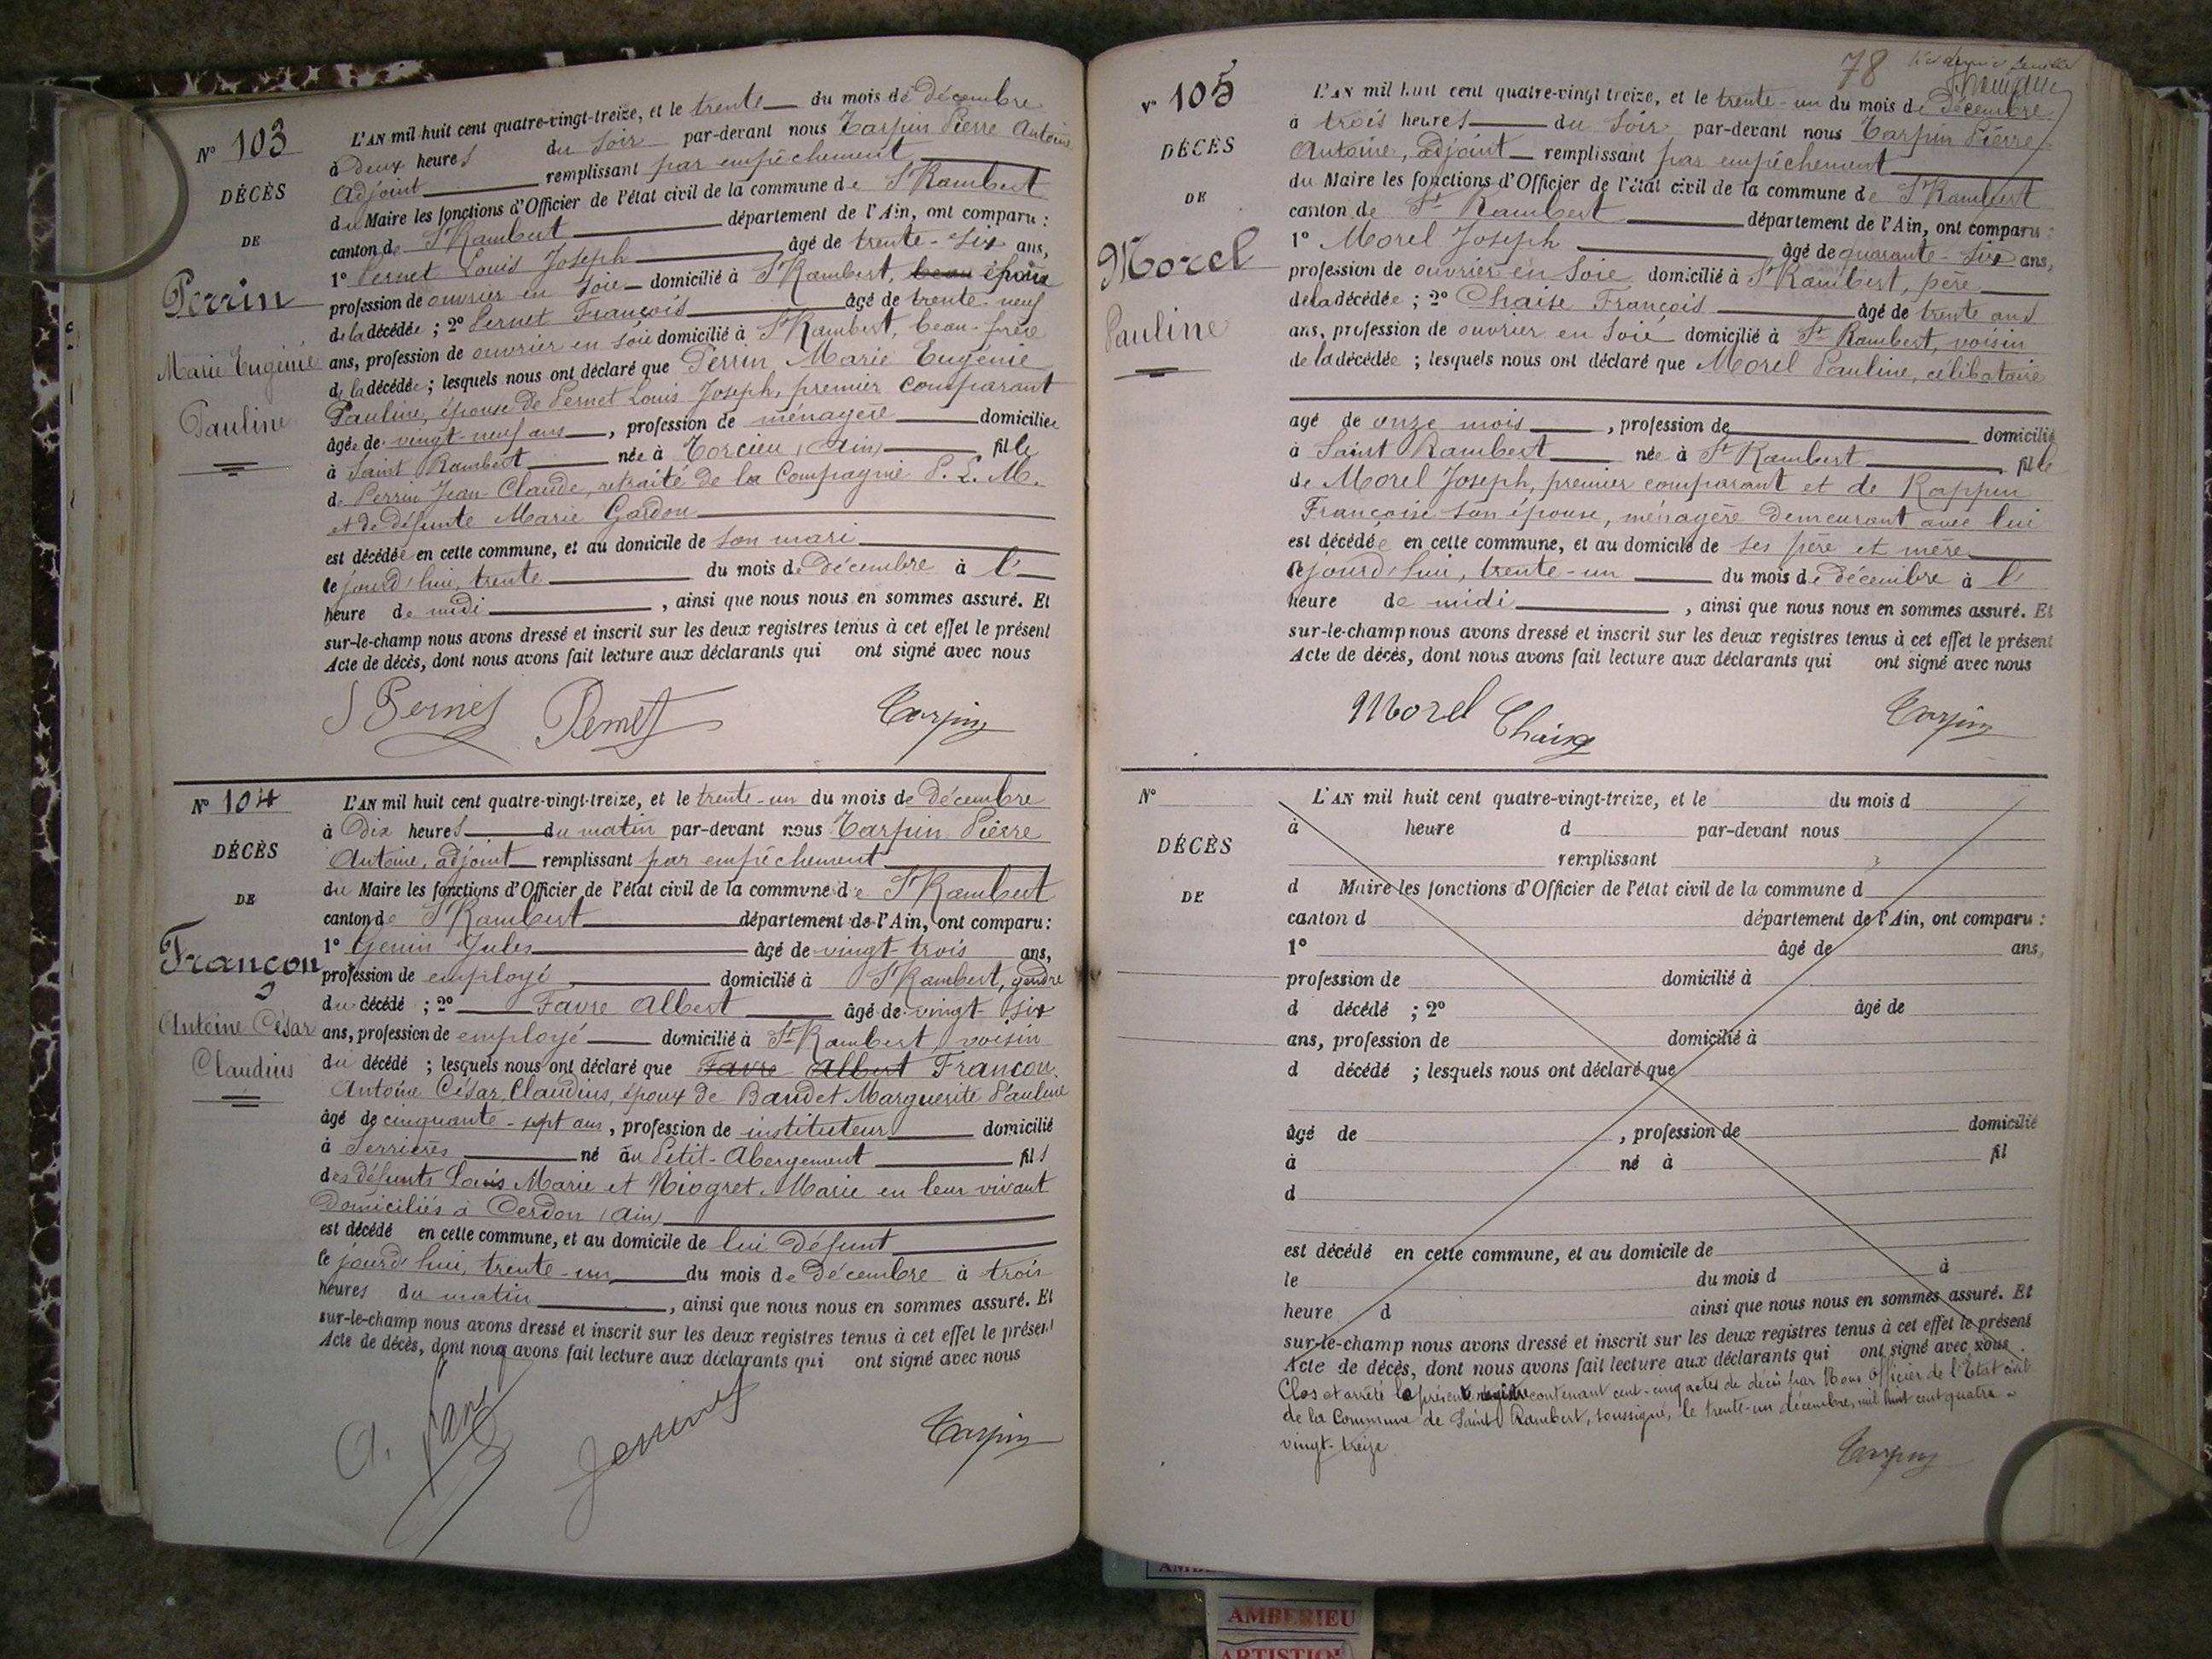 N° 103
DÉCÈS
DE
Perrin
Marie Eugénie
Pauline
L'AN mil huit cent quatre-vingt-treize, et le trente du mois de Décembre
à Deux heures du soir par-devant nous Tarpin Pierre Antoine
Adjoint remplissant par empêchement
du Maire les fonctions d'Officier de l'état civil de la commune de St Rambert
canton de St Rambert département de l'Ain, ont comparu :
1° Pernet Louis Joseph âgé de trente-six ans,
profession de ouvrier en soie domicilié à St Rambert, beau époux
de la décédée ; 2° Pernet François âgé de trente-neuf
ans, profession de ouvrier en soie domicilié à St Rambert, beau-frère
de la décédée ; lesquels nous ont déclaré que Perrin Marie Eugénie
Pauline, épouse de Pernet Louis Joseph, premier comparant
âgée de vingt-neuf ans, profession de ménagère domiciliée
à Saint Rambert née à Torcieu (Ain) fille
de Perrin Jean-Claude, retraité de la Compagnie P. L. M.
et de défunte Marie Gardon
est décédée en cette commune, et au domicile de son mari
le jourd'hui, trente du mois de Décembre à l'
heure de midi, ainsi que nous nous en sommes assuré. Et
sur-le-champ nous avons dressé et inscrit sur les deux registres tenus à cet effet le présent
Acte de décès, dont nous avons fait lecture aux déclarants qui ont signé avec nous
Pernet Pernet Tarpin
N° 104
DÉCÈS
DE
Françon
Antoine César
Claudius
L'AN mil huit cent quatre-vingt-treize, et le trente-un du mois de Décembre
à Dix heures du matin par-devant nous Tarpin Pierre
Antoine, adjoint remplissant par empêchement
du Maire les fonctions d'Officier de l'état civil de la commune de St Rambert
canton de St Rambert département de l'Ain, ont comparu :
1° Genin Jules âgé de vingt-trois ans,
profession de employé domicilié à St Rambert, gendre
du décédé ; 2° Favre Albert âgé de vingt-six
ans, profession de employé domicilié à St Rambert, voisin
du décédé ; lesquels nous ont déclaré que Favre Albert Françon
Antoine César, Claudius, époux de Baudet Marguerite Pauline
âgé de cinquante-sept ans, profession de instituteur domicilié
à Serrières né au Petit-Abergement fils
des défunts Louis Marie et Niogret Marie en leur vivant
Domiciliés à Cerdon (Ain)
est décédé en cette commune, et au domicile de lui défunt
le jourd'hui, trente-un du mois de Décembre à trois
heures du matin, ainsi que nous nous en sommes assuré. Et
sur-le-champ nous avons dressé et inscrit sur les deux registres tenus à cet effet le présent
Acte de décès, dont nous avons fait lecture aux déclarants qui ont signé avec nous
Tarpin
78
N° 105
DÉCÈS
DE
Morel
Pauline
L'AN mil huit cent quatre-vingt treize, et le trente-un du mois de Décembre
à trois heures du soir par-devant nous Tarpin Pierre
Antoine, adjoint remplissant par empêchement
du Maire les fonctions d'Officier de l'état civil de la commune de St Rambert
canton de St Rambert département de l'Ain, ont comparu :
1° Morel Joseph âgé de quarante-six ans,
profession de ouvrier en soie domicilié à St Rambert, père
de la décédée ; 2° Chaise François âgé de trente ans
ans, profession de ouvrier en soie domicilié à St Rambert, voisin
de la décédée ; lesquels nous ont déclaré que Morel Pauline, célibataire
agé de onze mois, profession de domicilié
à Saint Rambert née à St Rambert fille
de Morel Joseph, premier comparant et de Rappin
Françoise son épouse, ménagère demeurant avec lui
est décédée en cette commune, et au domicile de ses père et mère
le jourd'hui, trente-un du mois de décembre à l'
heure de midi, ainsi que nous nous en sommes assuré. Et
sur-le-champ nous avons dressé et inscrit sur les deux registres tenus à cet effet le présent
Acte de décès, dont nous avons fait lecture aux déclarants qui ont signé avec nous
Morel Chaise Tarpin
N°
DÉCÈS
DE
L'AN mil huit cent quatre-vingt-treize, et le du mois d
à heure d par-devant nous
remplissant
d Maire les fonctions d'Officier de l'état civil de la commune d
canton d département de l'Ain, ont comparu :
1° âgé de ans,
profession de domicilié à
d décédé ; 2° âgé de
ans, profession de domicilié à
d décédé ; lesquels nous ont déclaré que
âgé de , profession de domicilié
à né à fil
d
est décédé en cette commune, et au domicile de
le du mois d à
heure d ainsi que nous nous en sommes assuré. Et
sur-le-champ nous avons dressé et inscrit sur les deux registres tenus à cet effet le présent
Acte de décès, dont nous avons fait lecture aux déclarants qui ont signé avec nous.
Clos et arrêté le présent registre contenant cent-cinq actes de décès par Nous Officier de l'Etat civil
de la Commune de Saint Rambert, soussigné, le trente-un décembre, mil huit cent quatre-
vingt-treize.
Tarpin
AMBERIEU
ARTISTIQU